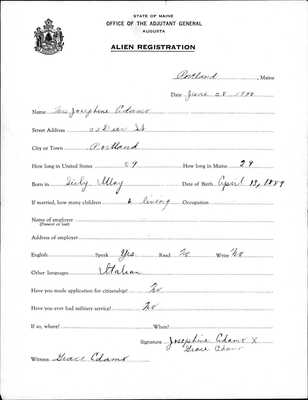 STATE OF MAINE
OFFICE OF THE ADJUTANT GENERAL
AUGUSTA
ALIEN REGISTRATION
Portland, Maine
Date June 28 1940
Name Mrs Josephine Adamo
Street Address Deer St
City or Town Portland
How long in United States 29 How long in Maine 29
Born in Italy Date of Birth April 13, 1889
If married, how many children living Occupation
Name of employer
(Present or last)
Address of employer
English Speak Yes Read No Write No
Other languages Italian
Have you made application for citizenship? No
Have you ever had military service? No
If so, where? When?
Signature Josephine Adamo X
Grace Adamo
Witness Grace Adamo